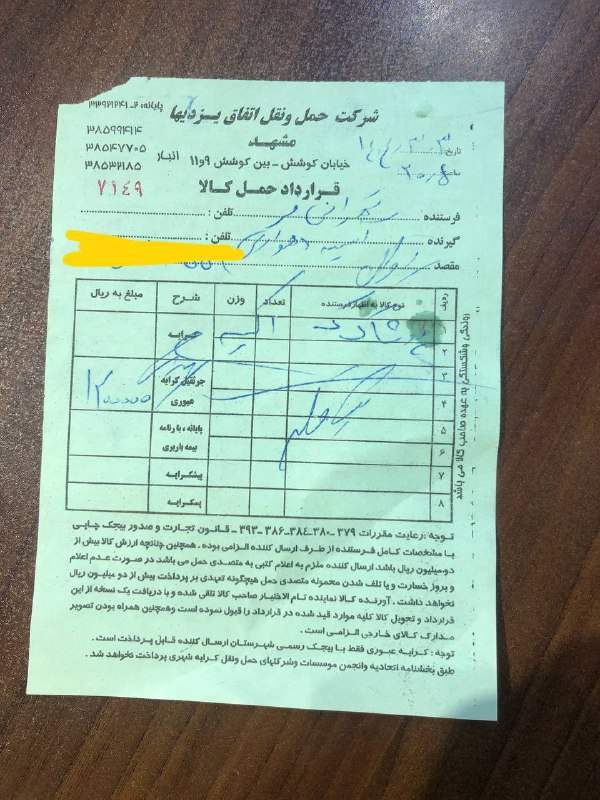 شرکت حمل ونقل اتفاق یزدیها
پایانه: ۲-۳۳۹۲۱۲۴۱
مشهد
۳۸۵۹۹۴۱۴
۳۸۵۴۷۷۰۵
۳۸۵۳۲۱۸۵
انبار خیابان کوشش - بین کوشش ۹و۱۱
تاریخ
ساعت
۷۱۴۹
قرارداد حمل کالا
فرستنده : تلفن :
گیرنده : تلفن :
مقصد
ردیف نوع کالا به اظهار فرستنده تعداد وزن شرح مبلغ به ریال
کرایه
۲
۳ جرثقیل کرایه
۴ عبوری ۱۲۰۰۰۰۰
۵ پایانه ، بارنامه
۶ بیمه باربری
۷ پیشکرایه
۸ پسکرایه
روندگی وشکستگی به عهده صاحب کالا می باشد
توجه : رعایت مقررات ۳۷۹ -۳۸۰ -۳۸۴-۳۸۶ -۳۹۳ ـ قانون تجارت و صدور بیجک چاپی
با مشخصات کامل فرستنده از طرف ارسال کننده الزامی بوده . همچنین چنانچه ارزش کالا بیش از
دو میلیون ریال باشد ارسال کننده ملزم به اعلام کتبی به متصدی حمل می باشد در صورت عدم اعلام
و بروز خسارت و یا تلف شدن محموله متصدی حمل هیچگونه تعهدی بر پرداخت بیش از دو میلیون ریال
نخواهد داشت . آورنده کالا نماینده تام الاختیار صاحب کالا تلقی شده و با دریافت یک نسخه از این
قرارداد و تحویل کالا کلیه موارد قید شده در قرارداد را قبول نموده است وهمچنین همراه بودن تصویر
مدارک کالای خارجی الزامی است .
توجه : کرایه عبوری فقط با بیجک رسمی شهرستان ارسال کننده قابل پرداخت است .
طبق بخشنامه اتحادیه وانجمن موسسات وشرکتهای حمل ونقل کرایه شهری پرداخت نخواهد شد .